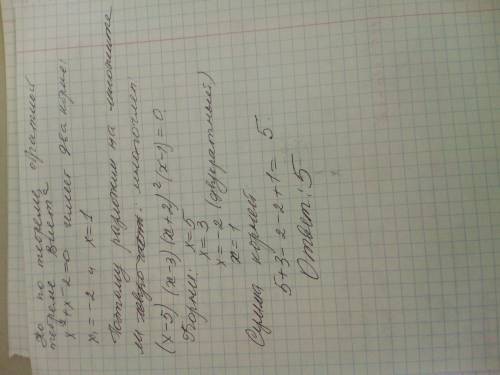 Но по теореме, обратной
теореме Виета
x²+x-2=0 имеет два корня:
x₁=-2 и x=1
Поэтому разложим на множите
ли левую часть. многочлен:
(x-5)(x-3)(x+2)²(x-1)=0.
Корни: x=5
x=3
x=-2 (двукратный)
x=1
Сумма корней
5+3-2-2+1= 5.
Ответ: 5